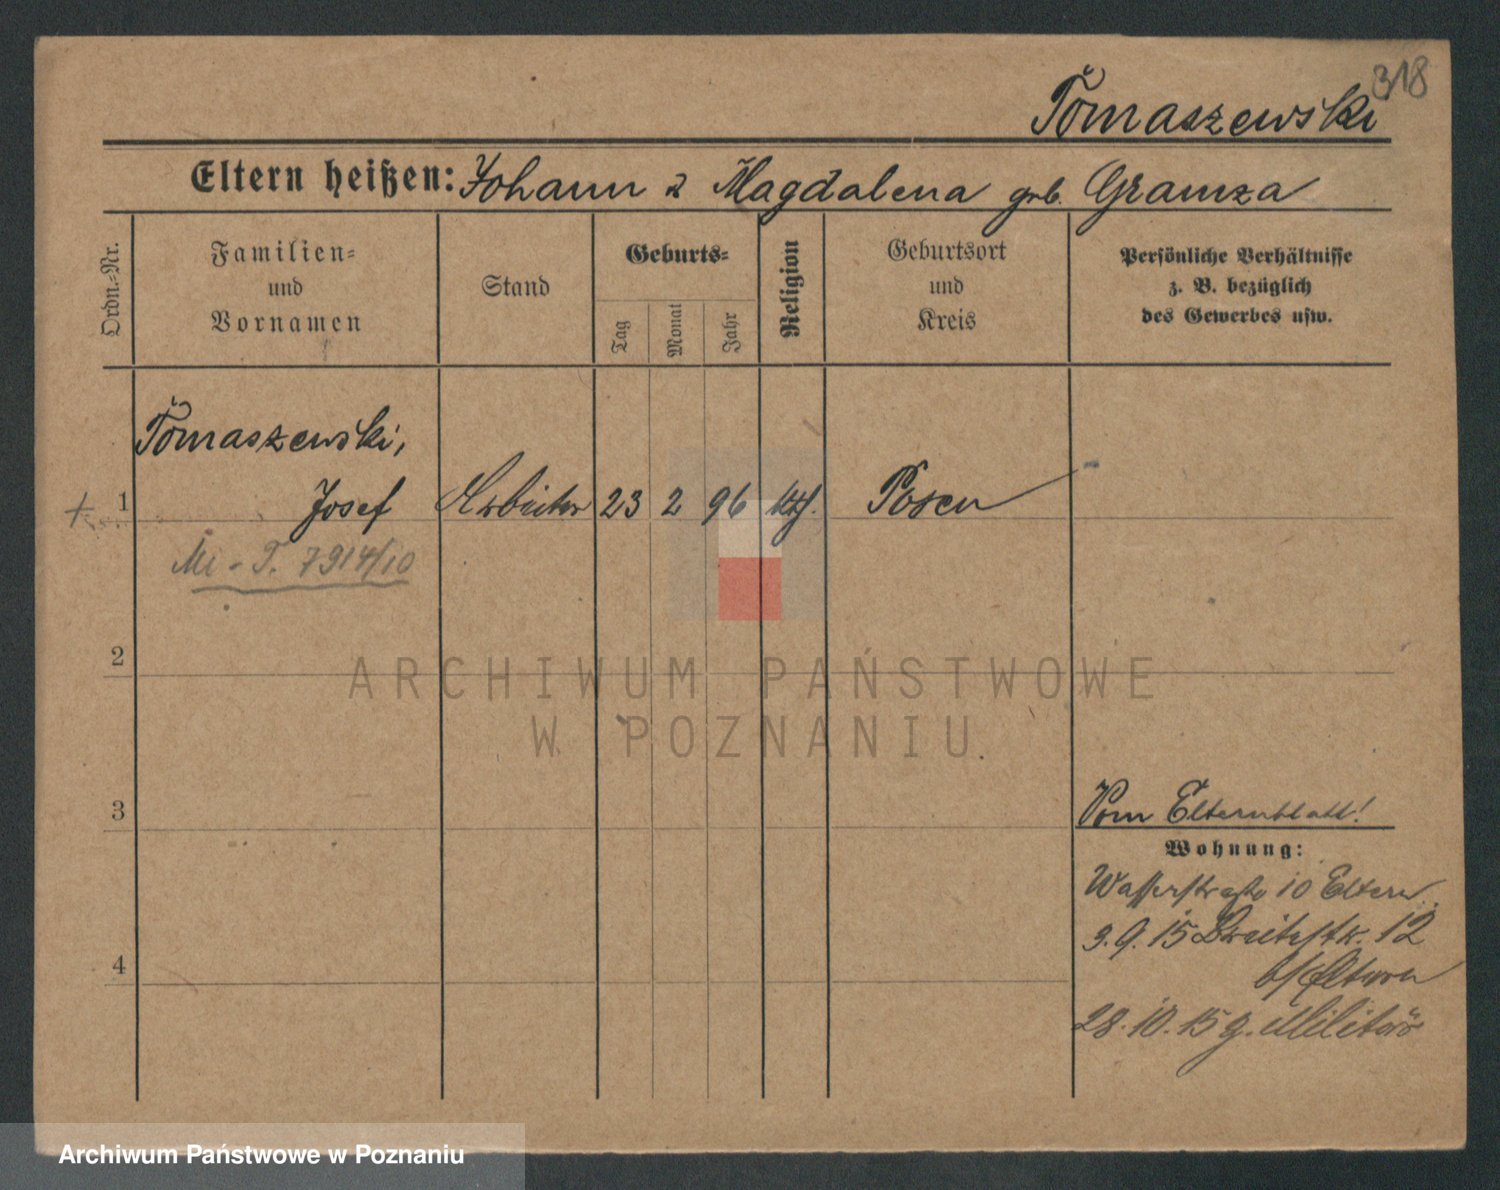 318
Tomaszewski
Eltern heißen: Johann u Magdalena geb. Gramza
Ordn.=Nr.
Familien=
und
Vornamen
Stand
Geburts=
Tag
Monat
Jahr
Religion
Geburtsort
und
Kreis
Persönliche Verhältnisse
z. B. bezüglich
des Gewerbes usw.
Tomaszewski,
1 Josef Arbeiter 23 2 96 kth. Posen
Mi - T. 7914/10
2
ARCHIWUM PAŃSTWOWE
W POZNANIU
3
Vom Elternblatt!
Wohnung:
Wasserstraße 10 Eltern
3.9.15 Breitestr. 12
b/Eltern
4
28.10.15 z. Militär
Archiwum Państwowe w Poznaniu